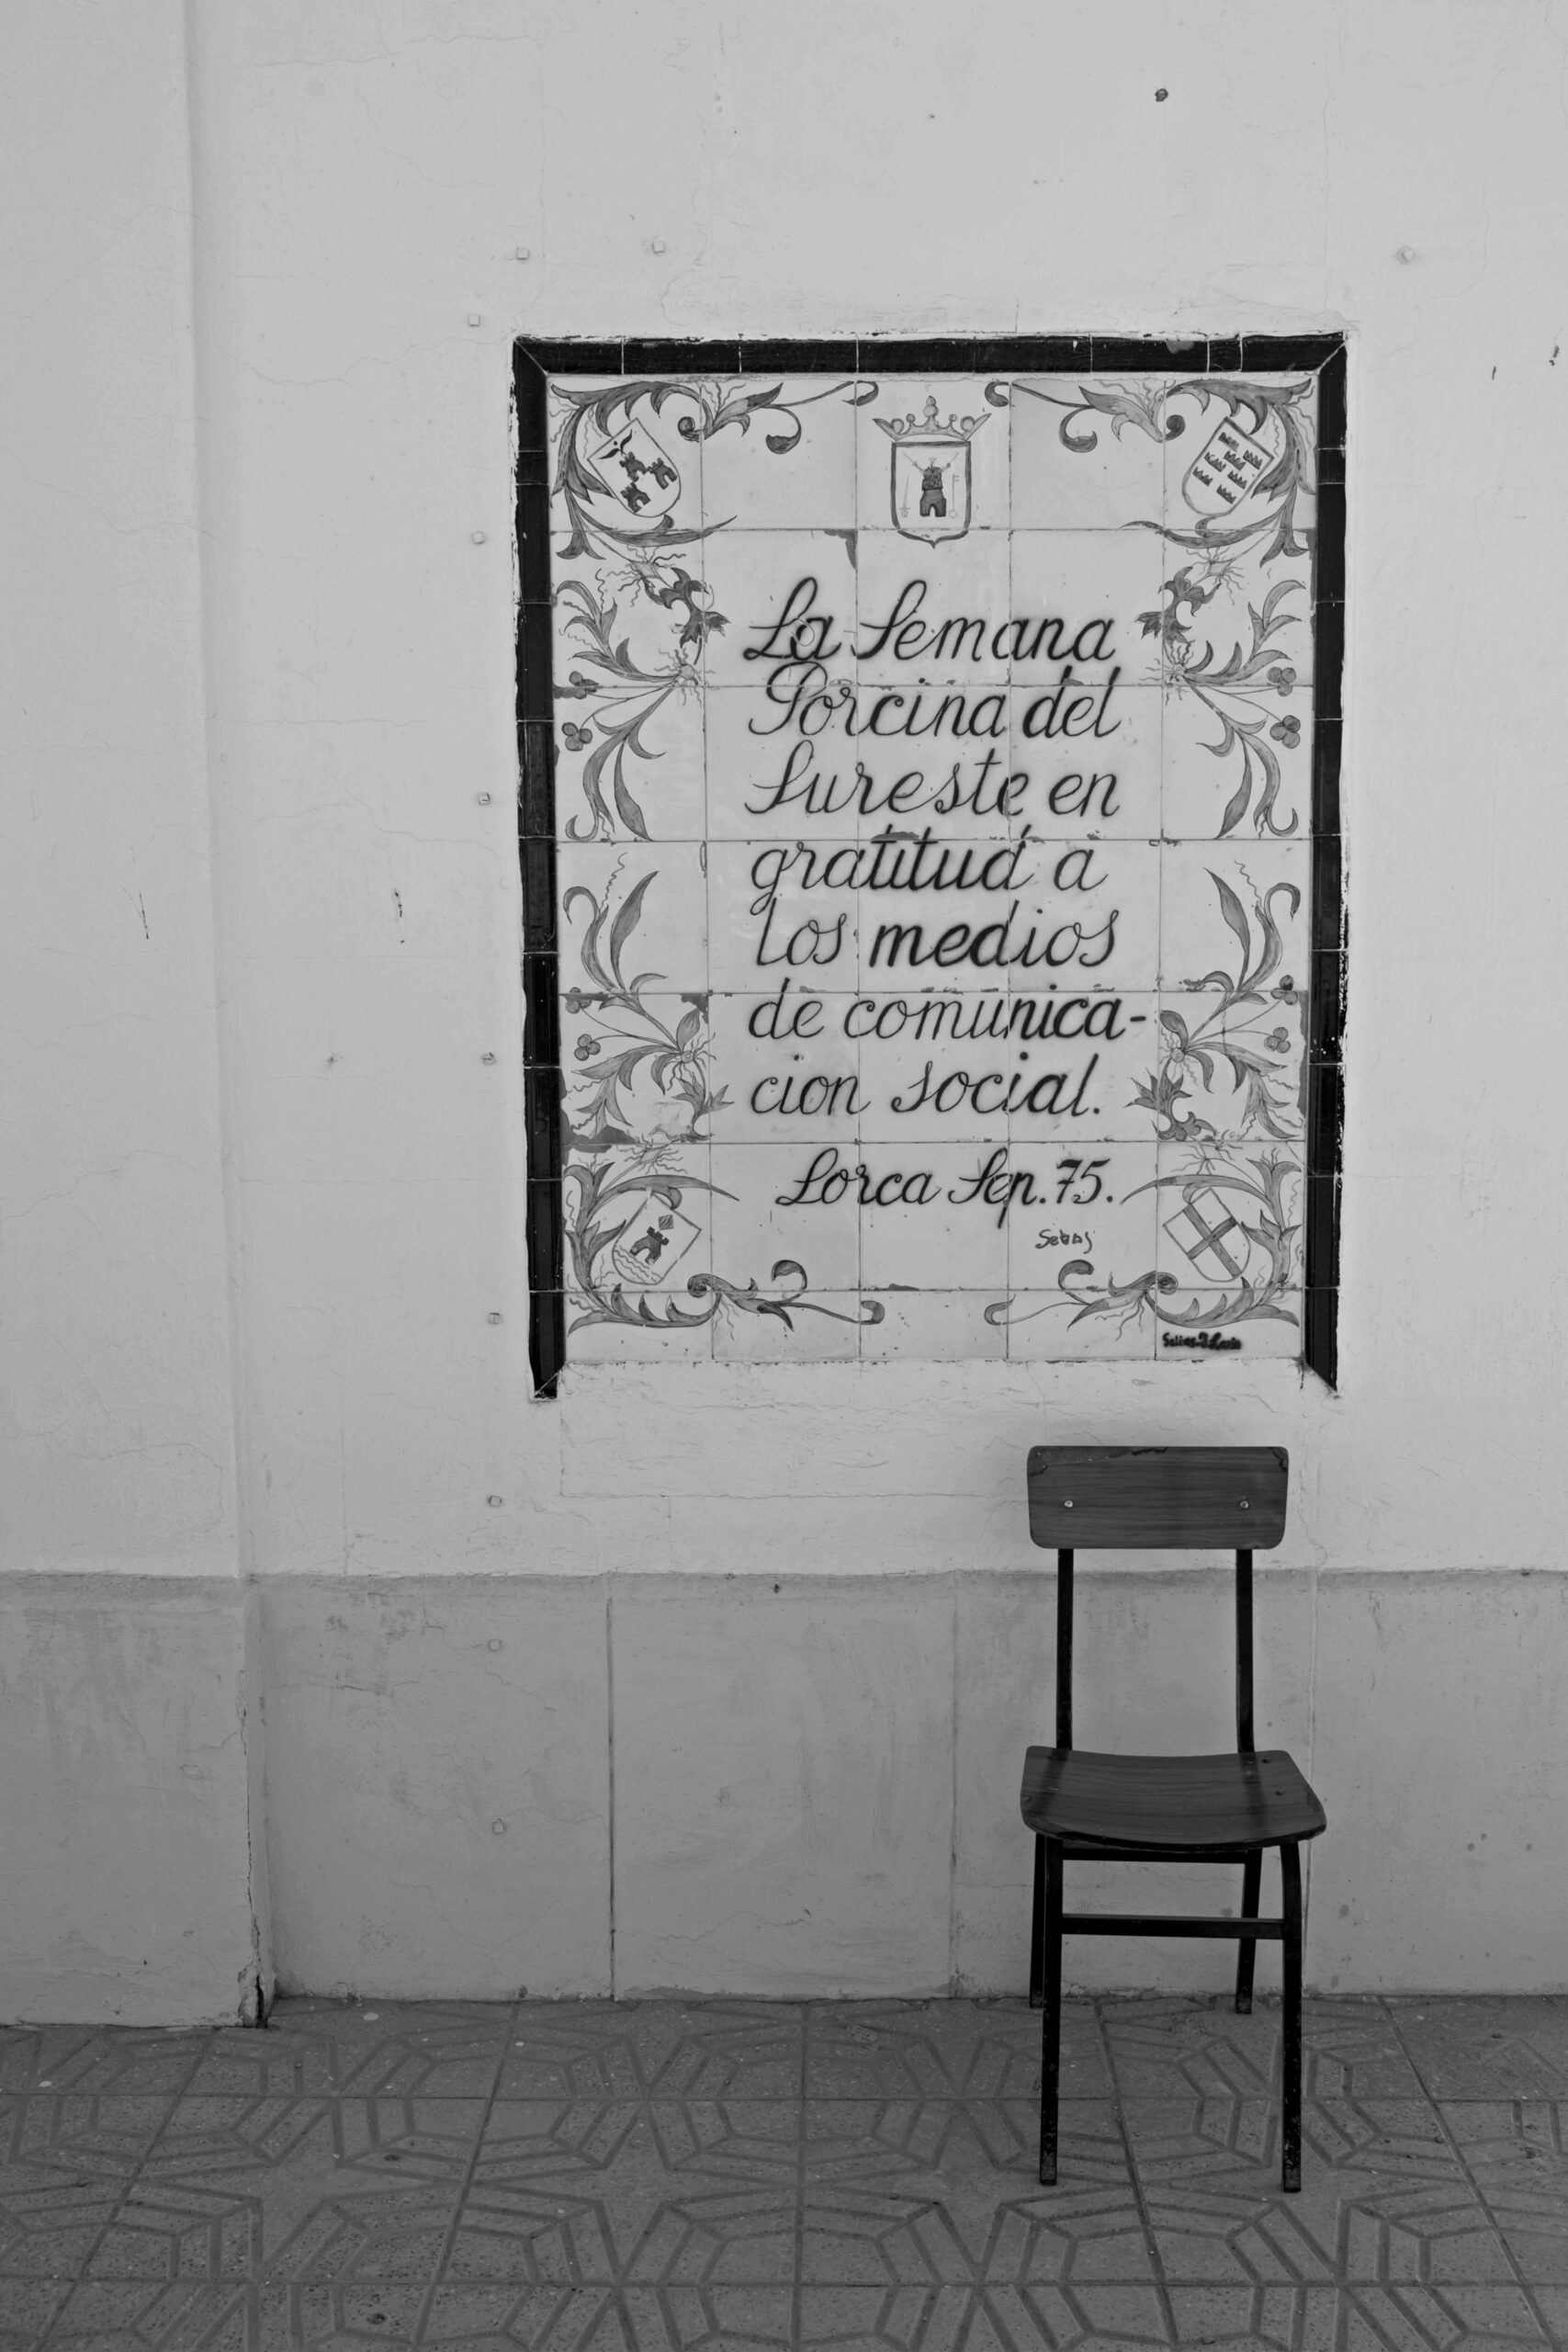 La Semana
Porcina del
Sureste en
gratitud a
los medios
de comunica-
cion social.
Lorca Sep. 75.
Sebas